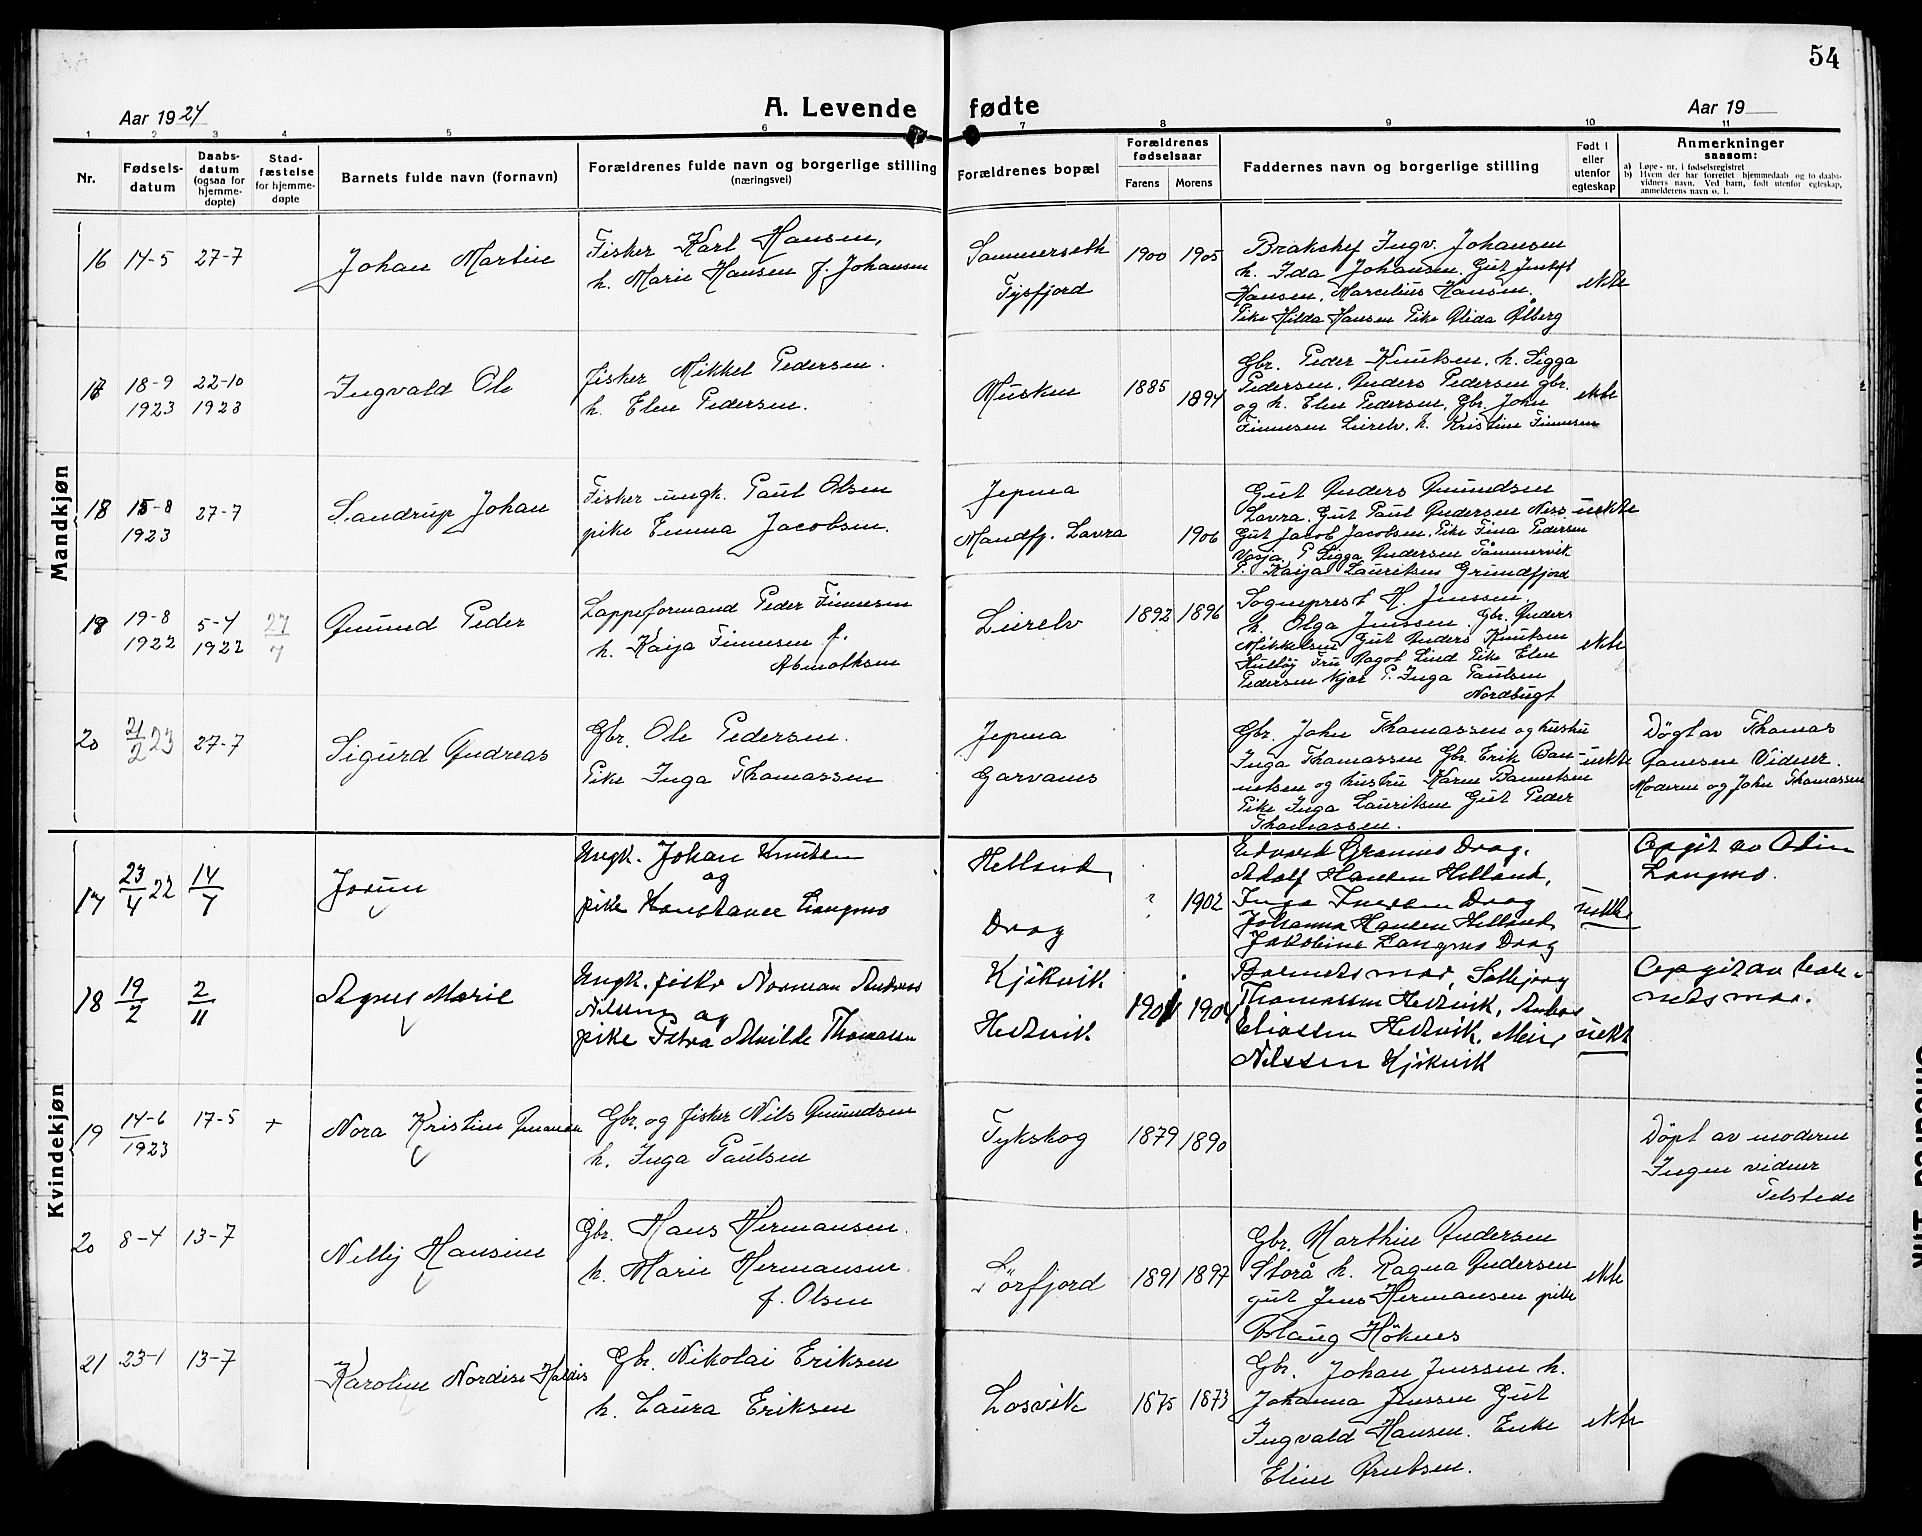 54
Aar 1924
A. Levende fødte
Aar 19
1 2 3 4 5 6 7 8 9 10 11
Nr.
Fødsels-
datum
Daabs-
datum
(ogsaa for
hjemme-
døpte)
Stad-
fæstelse
for hjemme-
døpte
Barnets fulde navn (fornavn)
Forældrenes fulde navn og borgerlige stilling
(næringsvei)
Forældrenes bopæl
Forældrenes
fødselsaar
Farens Morens
Faddernes navn og borgerlige stilling
Født i
eller
utenfor
egteskap
Anmerkninger
saasom:
a) Løpe-nr. i fødselsregistret
b) Hvem der har forrettet hjemmedaab og to daabs-
vidners navn. Ved barn, født utenfor egteskap,
anmelderens navn o. l.
Mandkjøn
16 14-5 27-7
Johan Martin
Fisker Karl Hansen,
h. Marie Hansen f. Johansen
Sammerseth
Tysfjord
1900 1905
Brakchef Ingv. Johansen
h. Ida Johansen. Gut
Hansen, Marcelius Hansen.
Pike Hilda Hansen Pike Alida Ålberg
ekte
17 18-9
1923
22-10
1923
Ingvald Ole
fisker Mikkel Pedersen.
h. Elen Pedersen.
Musken
1885 1894
Gbr. Peder Knutsen, h. Sigga
Pedersen, Anders Pedersen gbr.
og h. Elen Pedersen, Gbr. John
Finnesen Lirelv, h. Kristine Finnesen
ekte
18 15-8
1923
27-7
Sandrup Johan
Fisker ungk. Paul Olsen
pike Emma Jacobsen.
Jepma
Mandfj. Lavra
1906
Gut Anders Amundsen
Lavra. Gut Paul Andersen
Gut Jacob Jacobsen, Pike Fina Pedersen
P. Sigga Andersen Tømmervik
P. Kaija Lauritsen Grundfjord
uekte
19-8
1922
5-4
1922
27
7
Amund Peder
Lappeformand Peder Finnesen
h. Kaija Finnesen f.
Abmothsen
Lirelv
1892 1896
Sogneprest H. Jenssen,
h. Olga Jenssen. Gbr. Anders
Mikkelsen Gut Anders Knutsen
Fru Ragot Lind Pike Elen
Pedersen Kjær P. Inga Paulsen
Nordbugt
ekte
20 21
2 23
27-7
Sigurd Andreas
Gbr. Ole Pedersen.
Pike Inga Thomassen
Jepma
Garvanes
Gbr. John Thomassen og hustru
Inga Thomassen Gbr. Erik Ban-
netsen og hustru Karen Bannetsen
Pike Inga Lauritsen Gut Peder
Thomassen.
uekte
Døpt av Thomas
Jansen Vidner.
Moderen og John Thomassen
Kvindekjøn
17 23
4 22
14
7
Jorun
Ungk. Johan Knutsen
og
pike Konstance Langmo
Helland
Drag
? 1902
Edvard Grannes Drag,
Adolf Hansen Helland,
Inga Iversen Drag
Johanna Hansen Helland
Jakobine Langmo Drag
uekte
Opgit av Odin
Langmo.
18 19
2
2
11
Agnes Marie
Ungk. fisker Norman Andreas
Nilsen og
pike Petra Alvilde Thomassen
Kjikvik
Hestvik
1901 1904
Barnets mor, Solbjørg
Thomassen Hestvik, Anton
Eliassen Hestvik, Meier
Nilssen Kjikvik
uekt
Opgit av bar-
nets mor.
19 14-6
1923
17-5 +
Nora Kristine
Gbr. og fisker Nils Amundsen
h. Inga Paulsen
Tykskog
1879 1890
Døpt av moderen
Ingen vidner
Tilstede
20 8-4 13-7
Nelly Hansine
Gbr. Hans Hermansen.
h. Marie Hermansen
f. Olsen
Sørfjord
1891 1897
Gbr. Marthin Andersen
Storå h. Ragna Andersen
gut Jens Hermansen pike
Aslaug Höknes
ekte
21 23-1 13-7
Karoline Nordise Haldis
Gbr. Nikolai Eriksen
h. Laura Eriksen
Losvik
1875 1873
Gbr. Johan Jenssen h.
Johanna Jenssen Gut
Ingvald Hansen. Enke
Eline Arntsen.
ekte